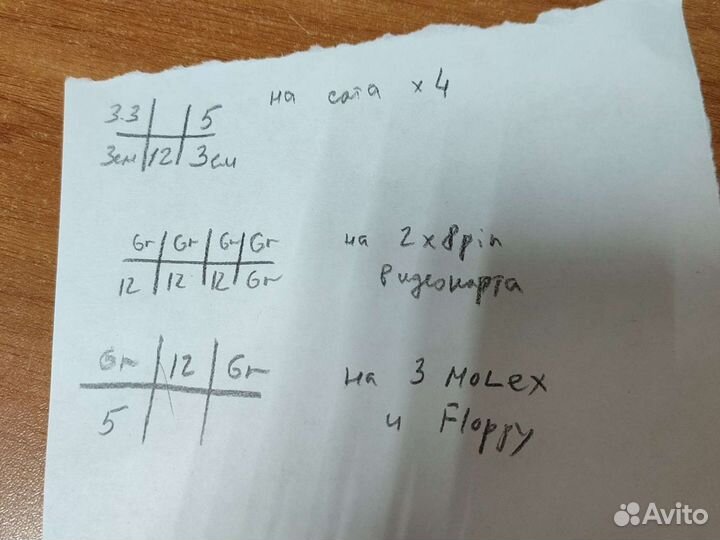 на сата x4
3.3 5
Зем 12 Зем
Gr Gr Gr Gr
12 12 12 Gr
на 2x8pin
видеокарта
Gr 12 Gr
5
на 3 MoLex
и Floppy
Avito